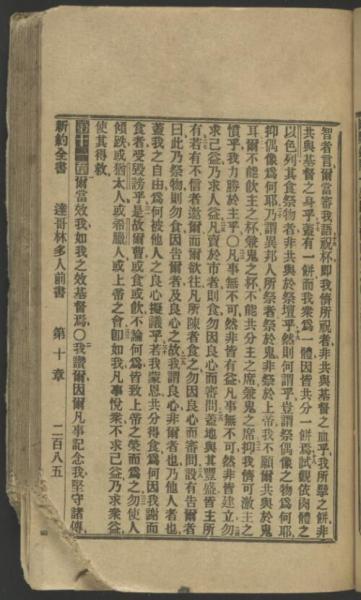 智者言爾當審我語祝杯卽我儕所祝者非共與基督之血乎我所擘之餅非
共與基督之身乎蓋有一餅而我衆爲一體因皆共分一餅爲試觀依肉體之
以色列其食祭物者非共與於祭壇乎然則何謂乎豈謂祭偶像之物爲何耶
抑偶像爲何耶乃謂異邦人所祭者祭於鬼非祭於上帝我不願爾共與於鬼
耳爾不能飲主之杯兼鬼之杯不能共分主之席兼鬼之席抑我儕可激主之
憤乎我力勝於主乎〇凡事無不可然非皆有益凡事無不可然非皆建立勿
求己益乃求人益凡賣於市者則食勿因良心而審問蓋地與其豐盛皆主所
有若有不信者邀爾而爾欲往凡所陳者食之勿因良心而審問設有告爾者
曰此乃祭物則勿食因告爾者及良心之故我謂良心非爾者也乃他人者也
蓋我之自由爲何被他人之良心擬議乎若我蒙恩共分得食爲何因我謝而
食者受毀謗乎是故爾曹或食或飲不論何爲皆致上帝之榮而爲之勿使人
傾跌或猶太人或希臘人或上帝之會卽如我凡事悅衆不求己益乃求衆益
使其得救
第十一章 爾當效我如我之效基督焉〇我讚爾因爾凡事記念我堅守諸傳
新約全書 達哥林多人前書 第十章 二百八五